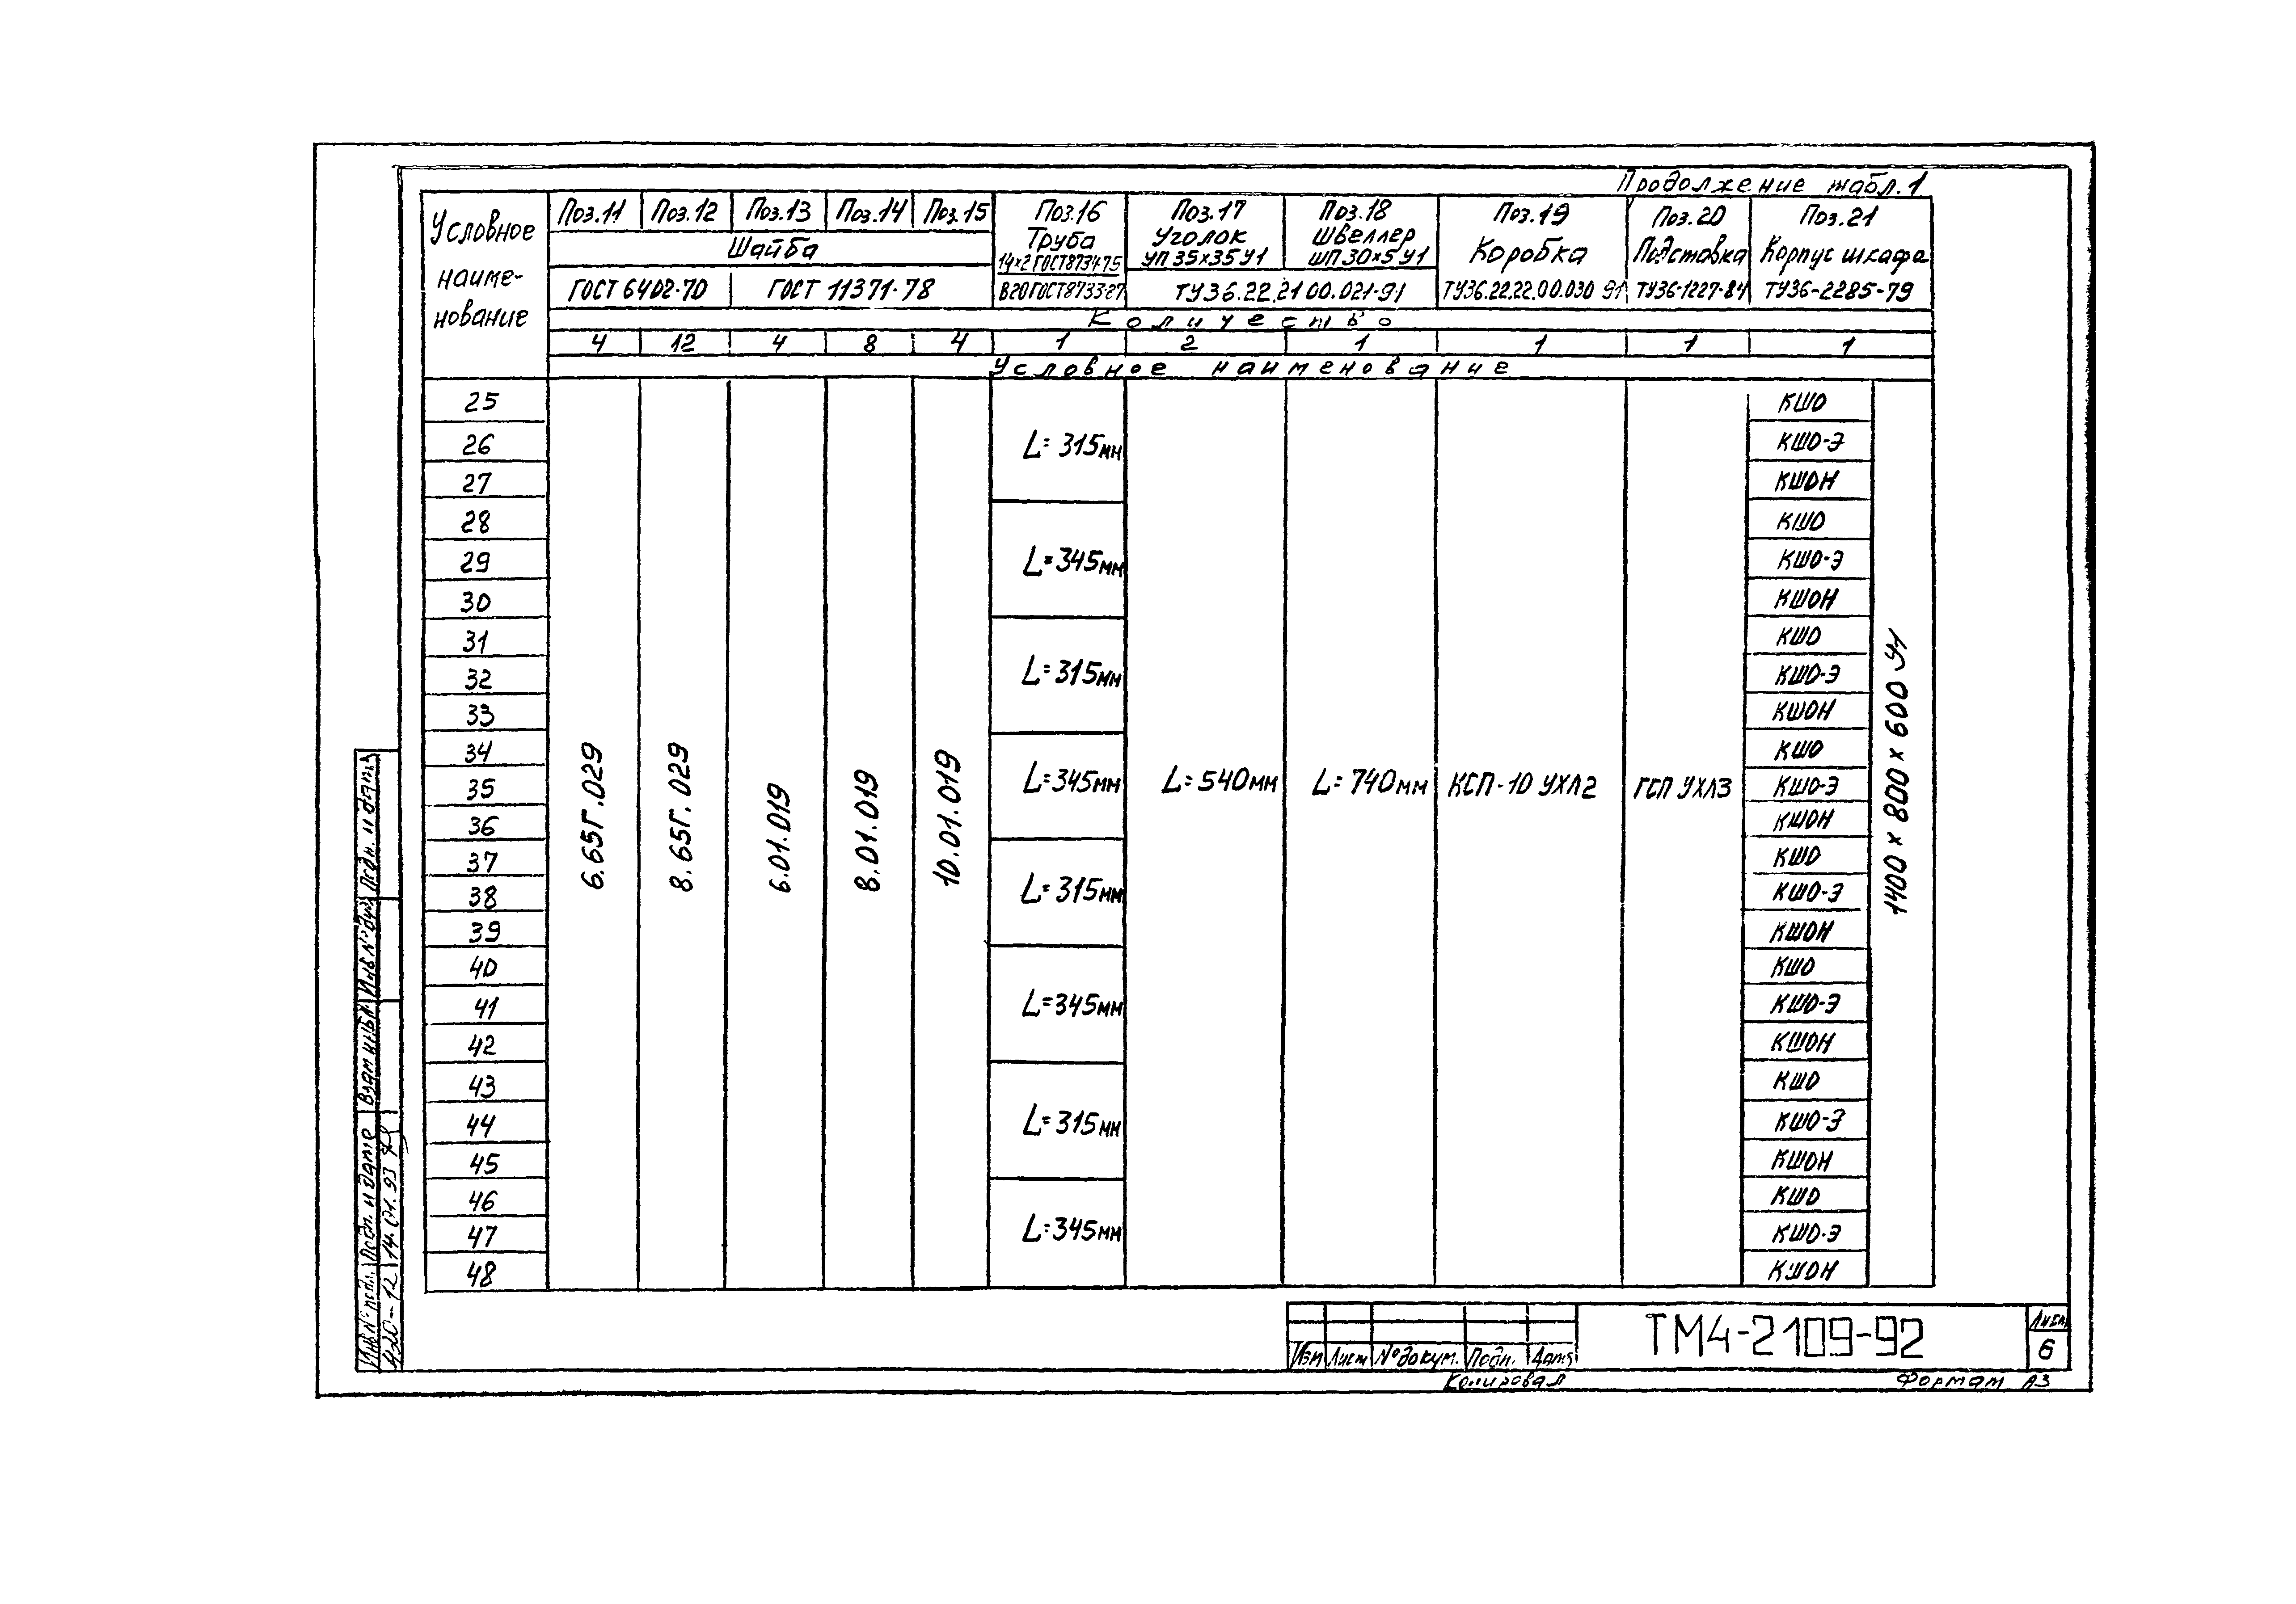 Продолжение табл.1
Условное наименование
Поз.11 Поз.12 Поз.13 Поз.14 Поз.15 Поз.16 Поз.17 Поз.18 Поз.19 Поз.20 Поз.21
Шайба Труба Уголок Швеллер Коробка Подставка Корпус шкафа
14×2 ГОСТ8734-75 УП 35×35 У1 ШП 30×5 У1
ГОСТ 6402-70 ГОСТ 11371-78 В20 ГОСТ8733-87 ТУ36.22.21 00.021-91 ТУ36.22.22.00.030 91 ТУ36-1227-84 ТУ36-2285-79
Количество
4 12 4 8 4 1 2 1 1 1 1
Условное наименование
25 КШО
26 L=315мм КШО-Э
27 КШОН
28 КШО
29 L=345мм КШО-Э
30 КШОН
31 КШО
32 L=315мм КШО-Э
33 КШОН
34 КШО
35 6.65Г.029 8.65Г.029 6.01.019 8.01.019 10.01.019 L=345мм L=540мм L=740мм КСП-10 УХЛ2 ГСП УХЛ3 КШО-Э 1400×800×600 У1
36 КШОН
37 КШО
38 L=315мм КШО-Э
39 КШОН
40 КШО
41 L=345мм КШО-Э
42 КШОН
43 КШО
44 L=315мм КШО-Э
45 КШОН
46 КШО
47 L=345мм КШО-Э
48 КШОН
Инв № подл. Подп. и дата Взам инв № Инв № дубл Подп. и дата
14.01.93
ТМ4-2109-92
Лист
6
Изм Лист № докум. Подп. Дата
Копировал Формат А3